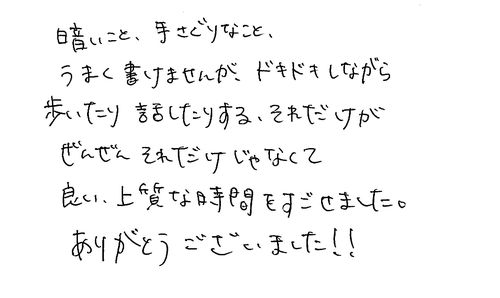 暗いこと、手さぐりなこと、
うまく書けませんが、ドキドキしながら
歩いたり 話したりする、それだけが
ぜんぜん それだけ じゃなくて
良い、上質な時間をすごせました。
ありがとう ございました!!